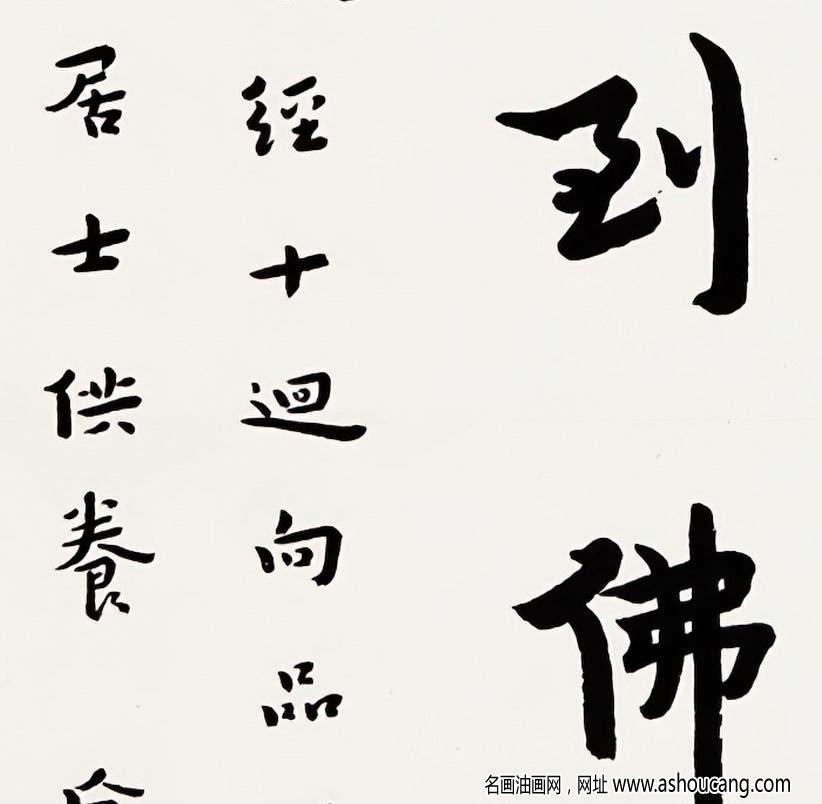 到佛
經十迴向品
居士供養
名画油画网，网址 www.ashoucang.com